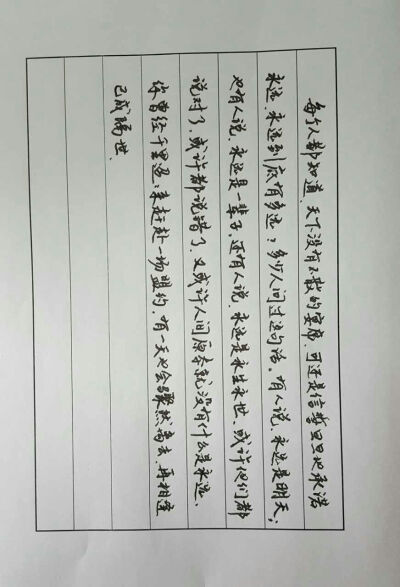 每个人都知道,天下没有不散的宴席,可还是信誓旦旦地承诺
永远,永远到底有多远?多少人问过这句话。有人说,永远是明天;
也有人说,永远是一辈子,还有人说,永远是永生永世。或许他们都
说对了,或许都说错了,又或许人间原本就没有什么是永远。
你曾经千里迢迢来赶赴一场盟约,有一天也会骤然离去,再相逢
已成隔世.